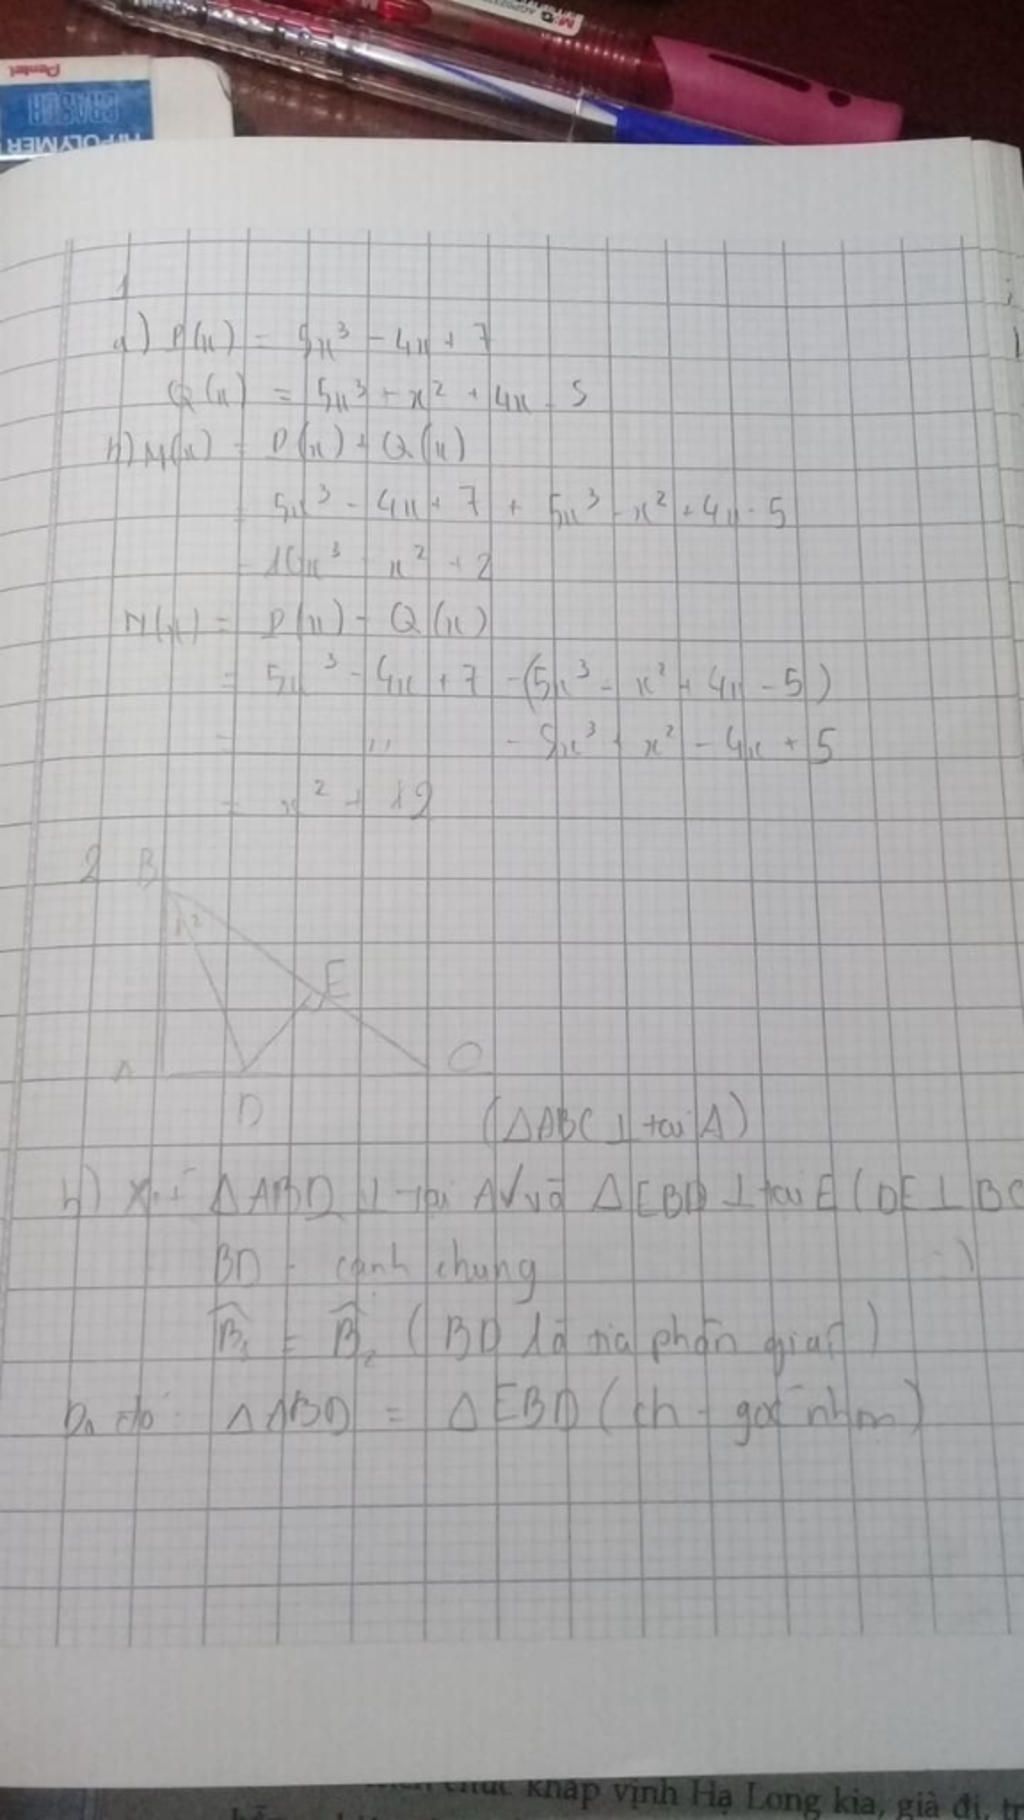 Pentel
ERASER
HI-POLYMER
1
a) P(x) = 5x³ - 4x + 7
Q(x) = 5x³ - x² + 4x - 5
b) M(x) = P(x) + Q(x)
5x³ - 4x + 7 + 5x³ - x² + 4x - 5
= 10x³ - x² + 2
N(x) = P(x) - Q(x)
= 5x³ - 4x + 7 - (5x³ - x² + 4x - 5)
= " - 5x³ + x² - 4x + 5
= x² + 12
2 B
1 2
E
A C
D
(△ABC ⊥ tại A)
b) Xét △ABD ⊥ tại A và △EBD ⊥ tại E (DE ⊥ BC
BD - cạnh chung )
B̂₁ = B̂₂ (BD là tia phân giác)
Do đó: △ABD = △EBD (ch - góc nhọn)
khắp vịnh Hạ Long kia, già đi,